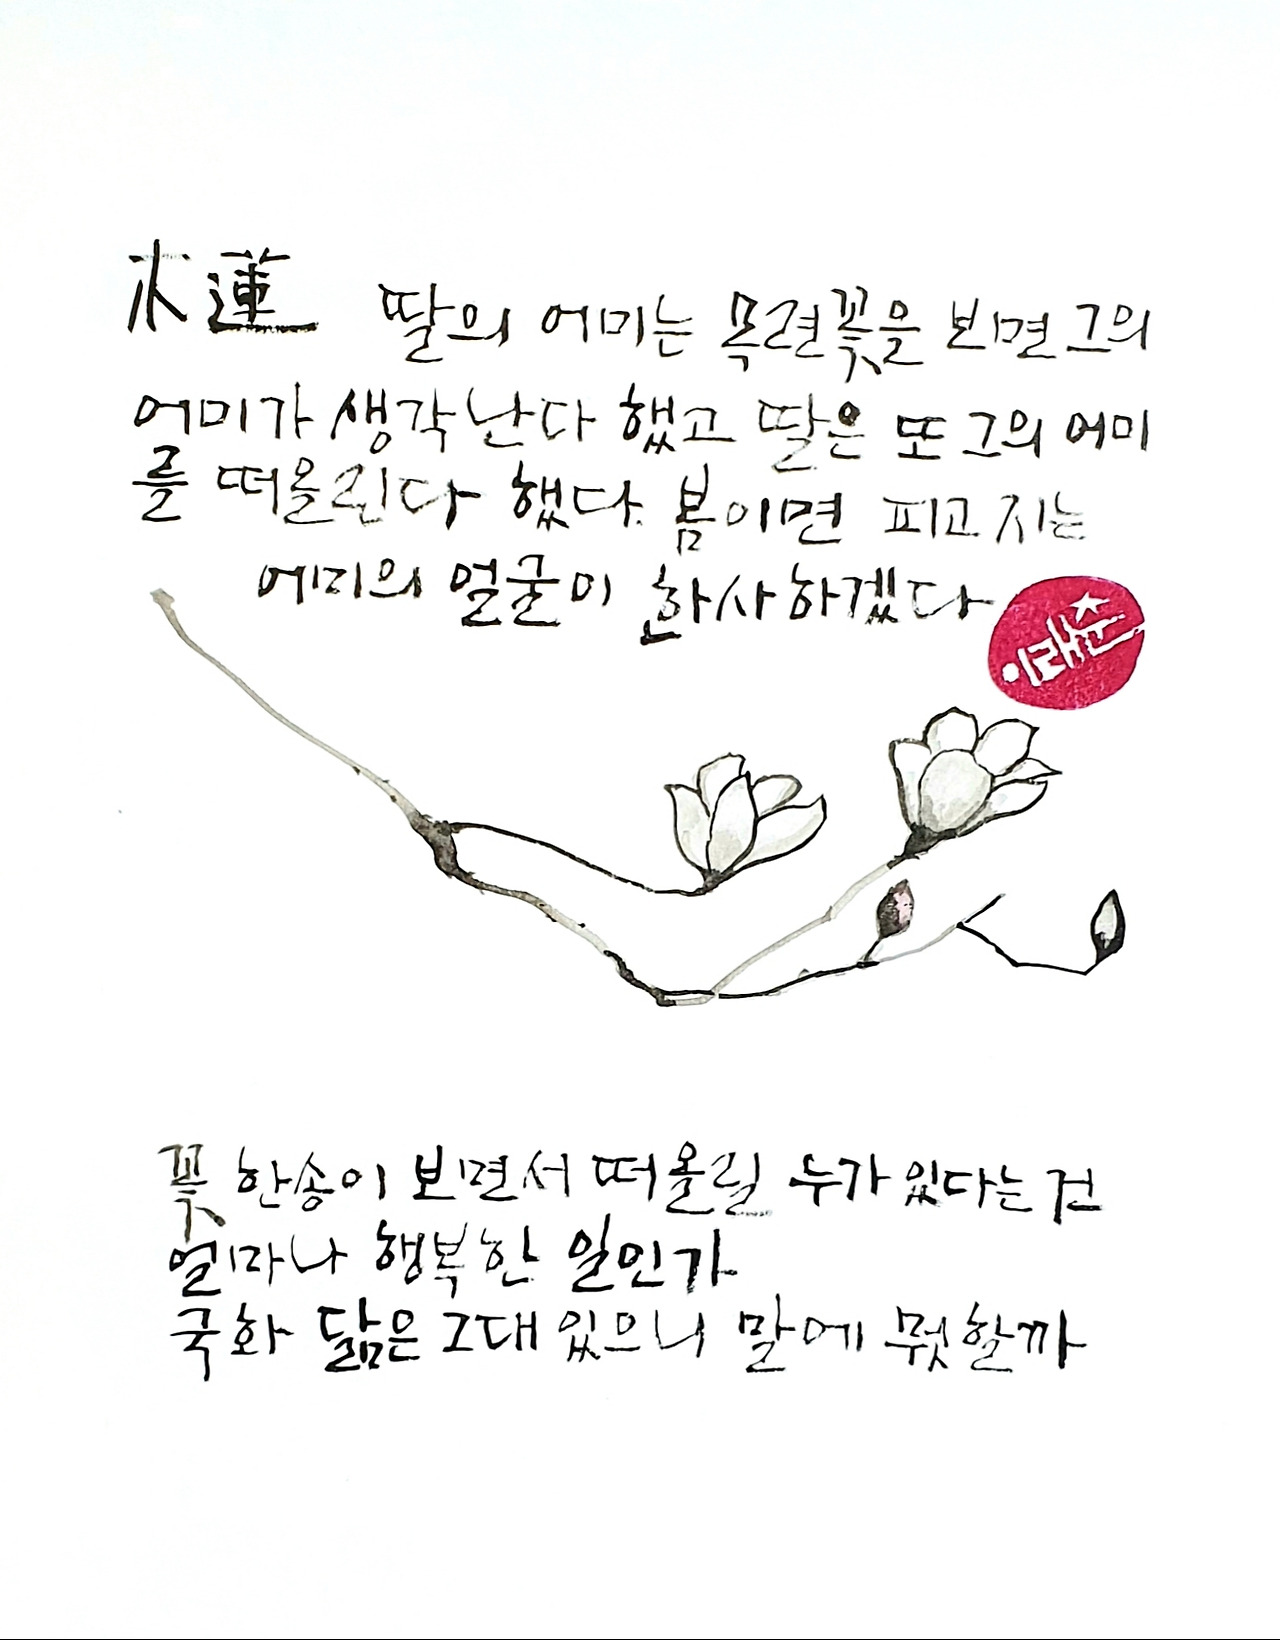 木蓮 딸의 어미는 목련꽃을 보면 그의
어미가 생각난다 했고 딸은 또 그의 어미
를 떠올린다 했다. 봄이면 피고 지는
에미의 얼굴이 환사하겠다
이래춘
꽃 한송이 보면서 떠올릴 누가 있다는 건
얼마나 행복한 일인가
국화 닮은 그대 있으니 말에 뭣할까